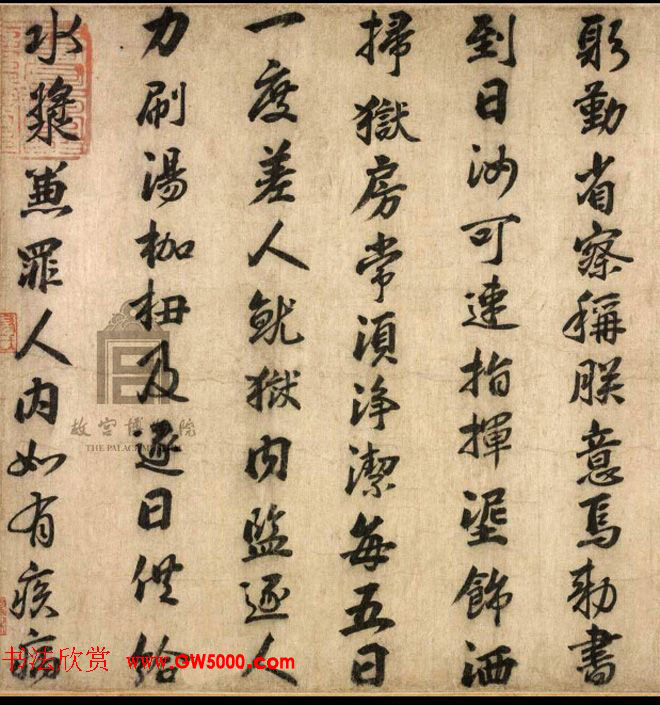 躬勤省察稱朕意焉勅書
到日汝可速指揮埿飾洒
掃獄房常湏浄潔每五日
一度差人就獄内監逐人
力刷湯枷杻及逐日供給
水漿兼罪人内如有疾病
故宫博物院
THE PALACE MUSEUM
书法欣赏 www.GW5000.com